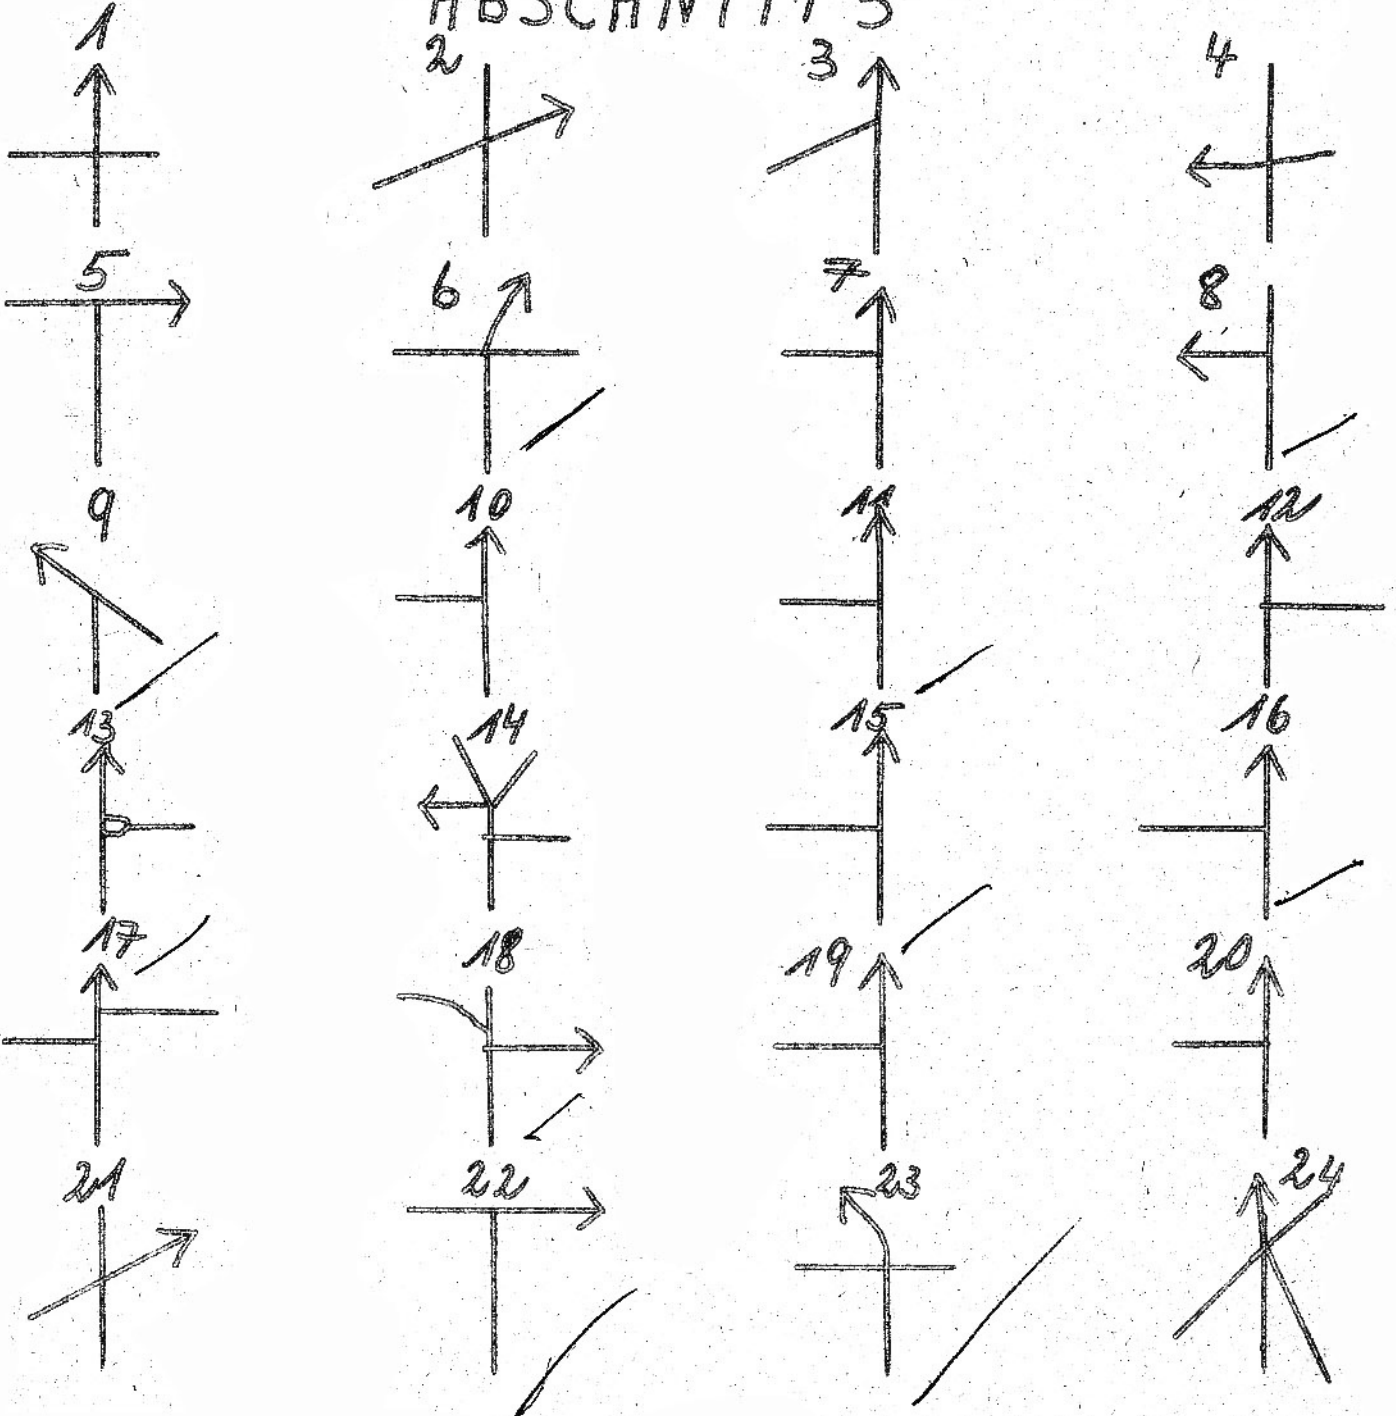 ABSCHNITT 5
1 2 3 4
5 6 7 8
9 10 11 12
13 14 15 16
17 18 19 20
21 22 23 24